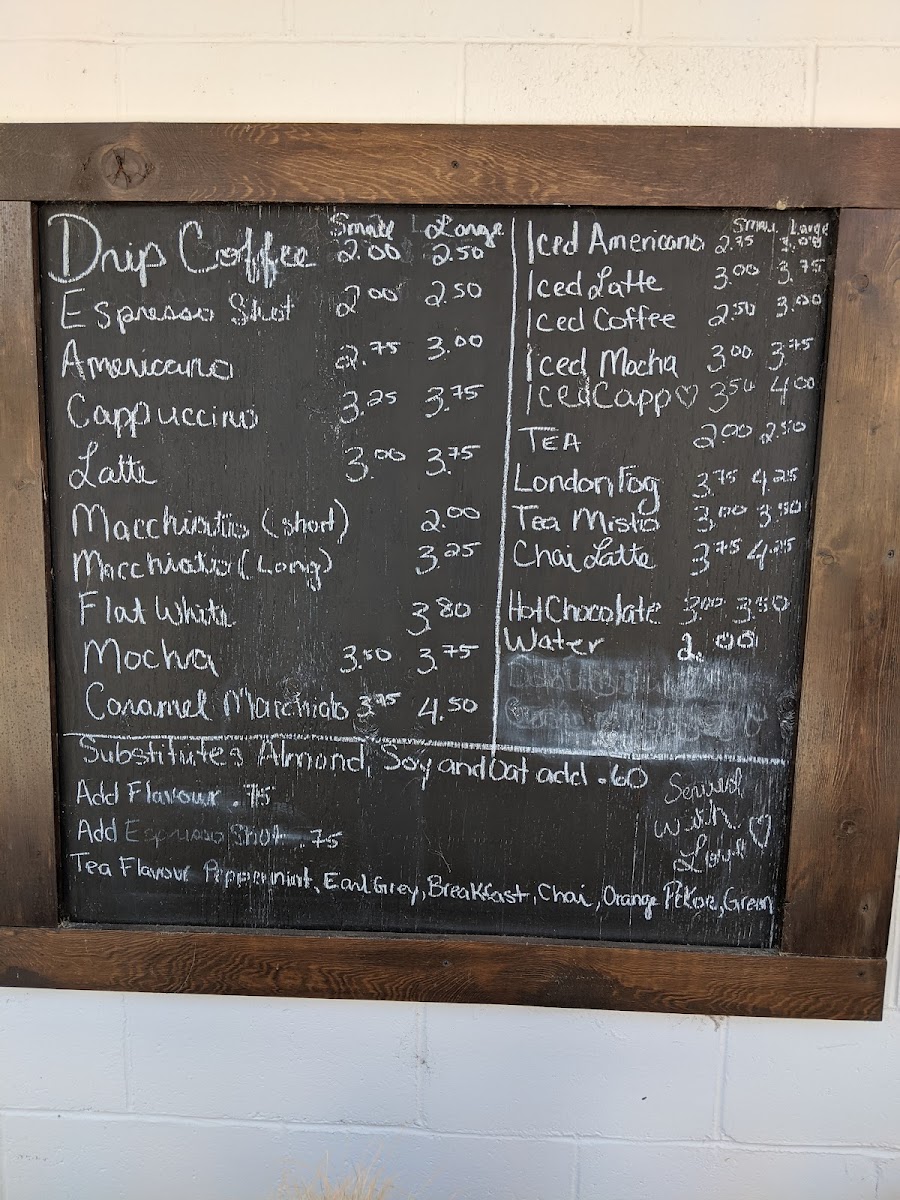 Small Large
Drip Coffee 2.00 2.50
Espresso Shot 2.00 2.50
Americano 2.75 3.00
Cappuccino 3.25 3.75
Latte 3.00 3.75
Macchiatto (short) 2.00
Macchiato (Long) 3.25
Flat White 3.80
Mocha 3.50 3.75
Caramel Macchiato 3.95 4.50
Small Large
Iced Americano 2.75 3.00
Iced Latte 3.00 3.75
Iced Coffee 2.50 3.00
Iced Mocha 3.00 3.75
Iced Capp♡ 3.50 4.00
TEA 2.00 2.50
London Fog 3.75 4.25
Tea Misto 3.00 3.50
Chai Latte 3.75 4.25
Hot Chocolate 3.00 3.50
Water 2.00
Substitutes Almond, Soy and Oat add .60
Add Flavour .75
Add Espresso Shot .75
Tea Flavour Peppermint, Earl Grey, Breakfast, Chai, Orange Pekoe, Green
Served
with ♡
Love